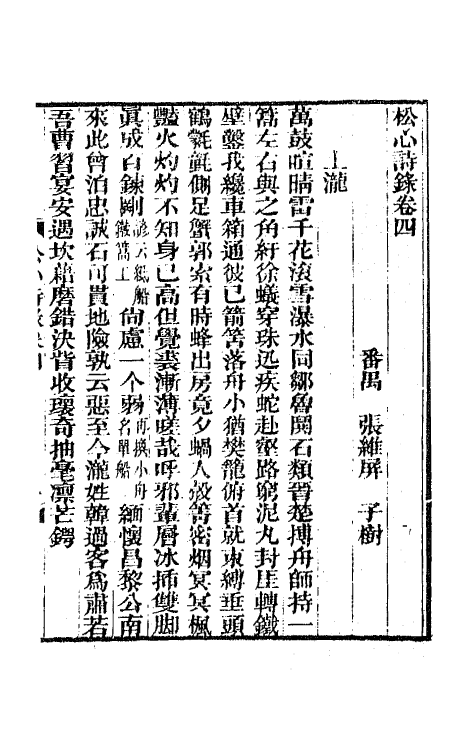 松心詩錄卷四
番禺 張維屏 子樹
上瀧
萬鼓喧晴雷千花滾雪瀑水同鄒魯鬨石類晉楚搏舟師持一
篙左右與之角紆徐蟻穿珠迅疾蛇赴壑路窮泥丸封厓轉鐵
壁鑿我纜車箱通彼已箭筈落舟小猶樊籠俯首就束縛垂頭
鶴毿毿側足蟹郭索有時蜂出房竟夕蝸人殼篛密烟冥冥楓
豔火灼灼不知身已高但覺裘漸薄嗟哉呼邪輩層冰揷雙脚
眞成百鍊剛諺云紙船鐵篙工尙慮一个弱再換小舟名單船緬懷昌黎公南
來此曾泊忠誠石可貫地險孰云惡至今瀧姓韓過客爲肅若
吾曹習宴安遇坎藉磨錯決眥收瓌奇抽毫凜芒鍔